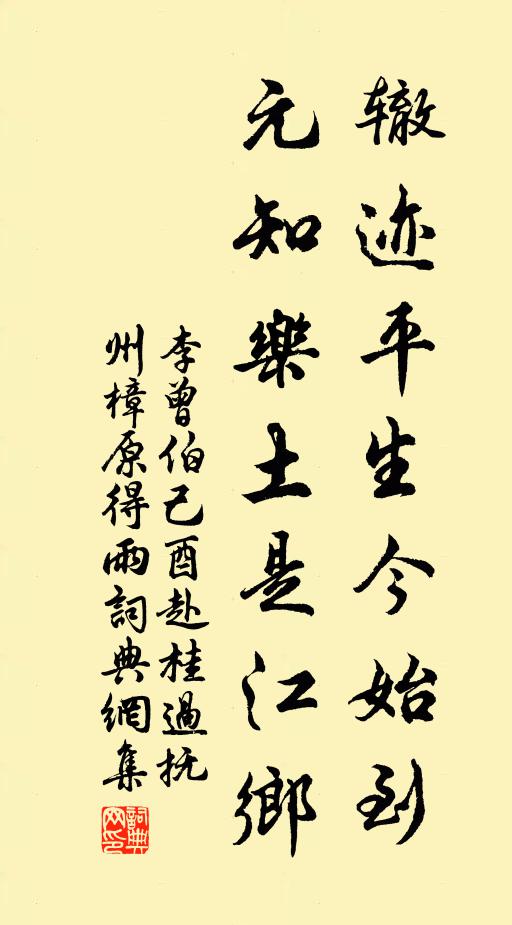 辙迹平生今始到
元知樂土是江鄉
李曾伯己酉赴桂過抚
州樟原得雨詞典網集
詞典
网印